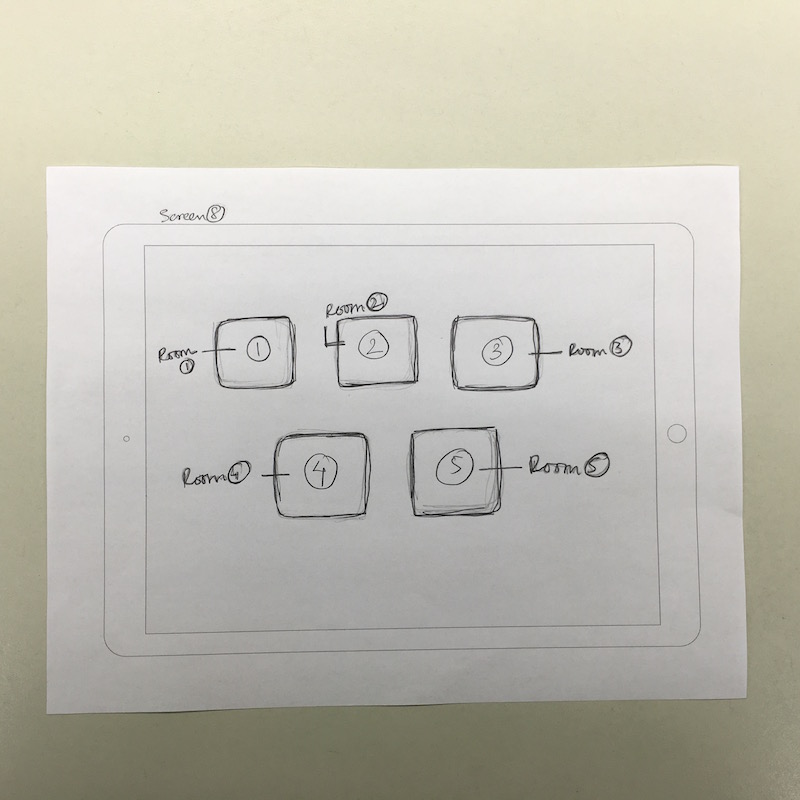 Screen 8
Room 2
1
2
3
Room 1
Room 3
Room 4
4
5
Room 5